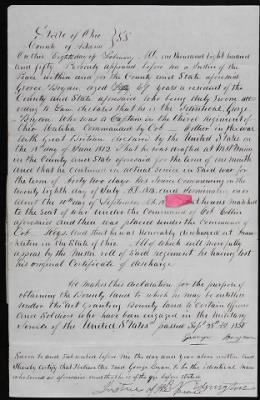 State of Ohio } SS
County of
On this Eighth day of February AD. one thousand Eight hundred
and fifty personally appeared before me a Justice of the
Peace within and for the County and State aforesaid
George Bryan, aged 69 years a resident of the
County and State aforesaid who being duly sworn ac-
cording to Law declares that he is the Identical George
Bryan who was a Captain in the Regiment of
Ohio Militia Commanded by Col in the war
with great Britain declared by the United States on
the 18th day of June 1812 that he was drafted at
in the County and State aforesaid for the term of one month
and that he continued in actual service in said war for the
term of forty two days his term commencing on the
twenty eighth day of July AD. 1813 and terminating
about the day of September AD. he was marched
to the seat of war under the Command of Col
aforesaid and then was placed under the Command of
Col. and was Honorably discharged at Fran-
klin in the State of Ohio. All of which will more fully
appear by the muster roll of said regiment he having lost
his original Certificate of discharge
He makes this declaration for the purpose of
obtaining the Bounty land to which he may be entitled
under the act Granting Bounty land to Certain officers
and Soldiers who have been engaged in the military
Service of the United States passed Sept 28th AD. 1850
George Bryan
Sworn to and Subscribed before me the day and year above written And
I hereby certify that I believe the said George Bryan to be the identical man
who served as aforesaid and that he is of the age before stated
Justice of the Peace